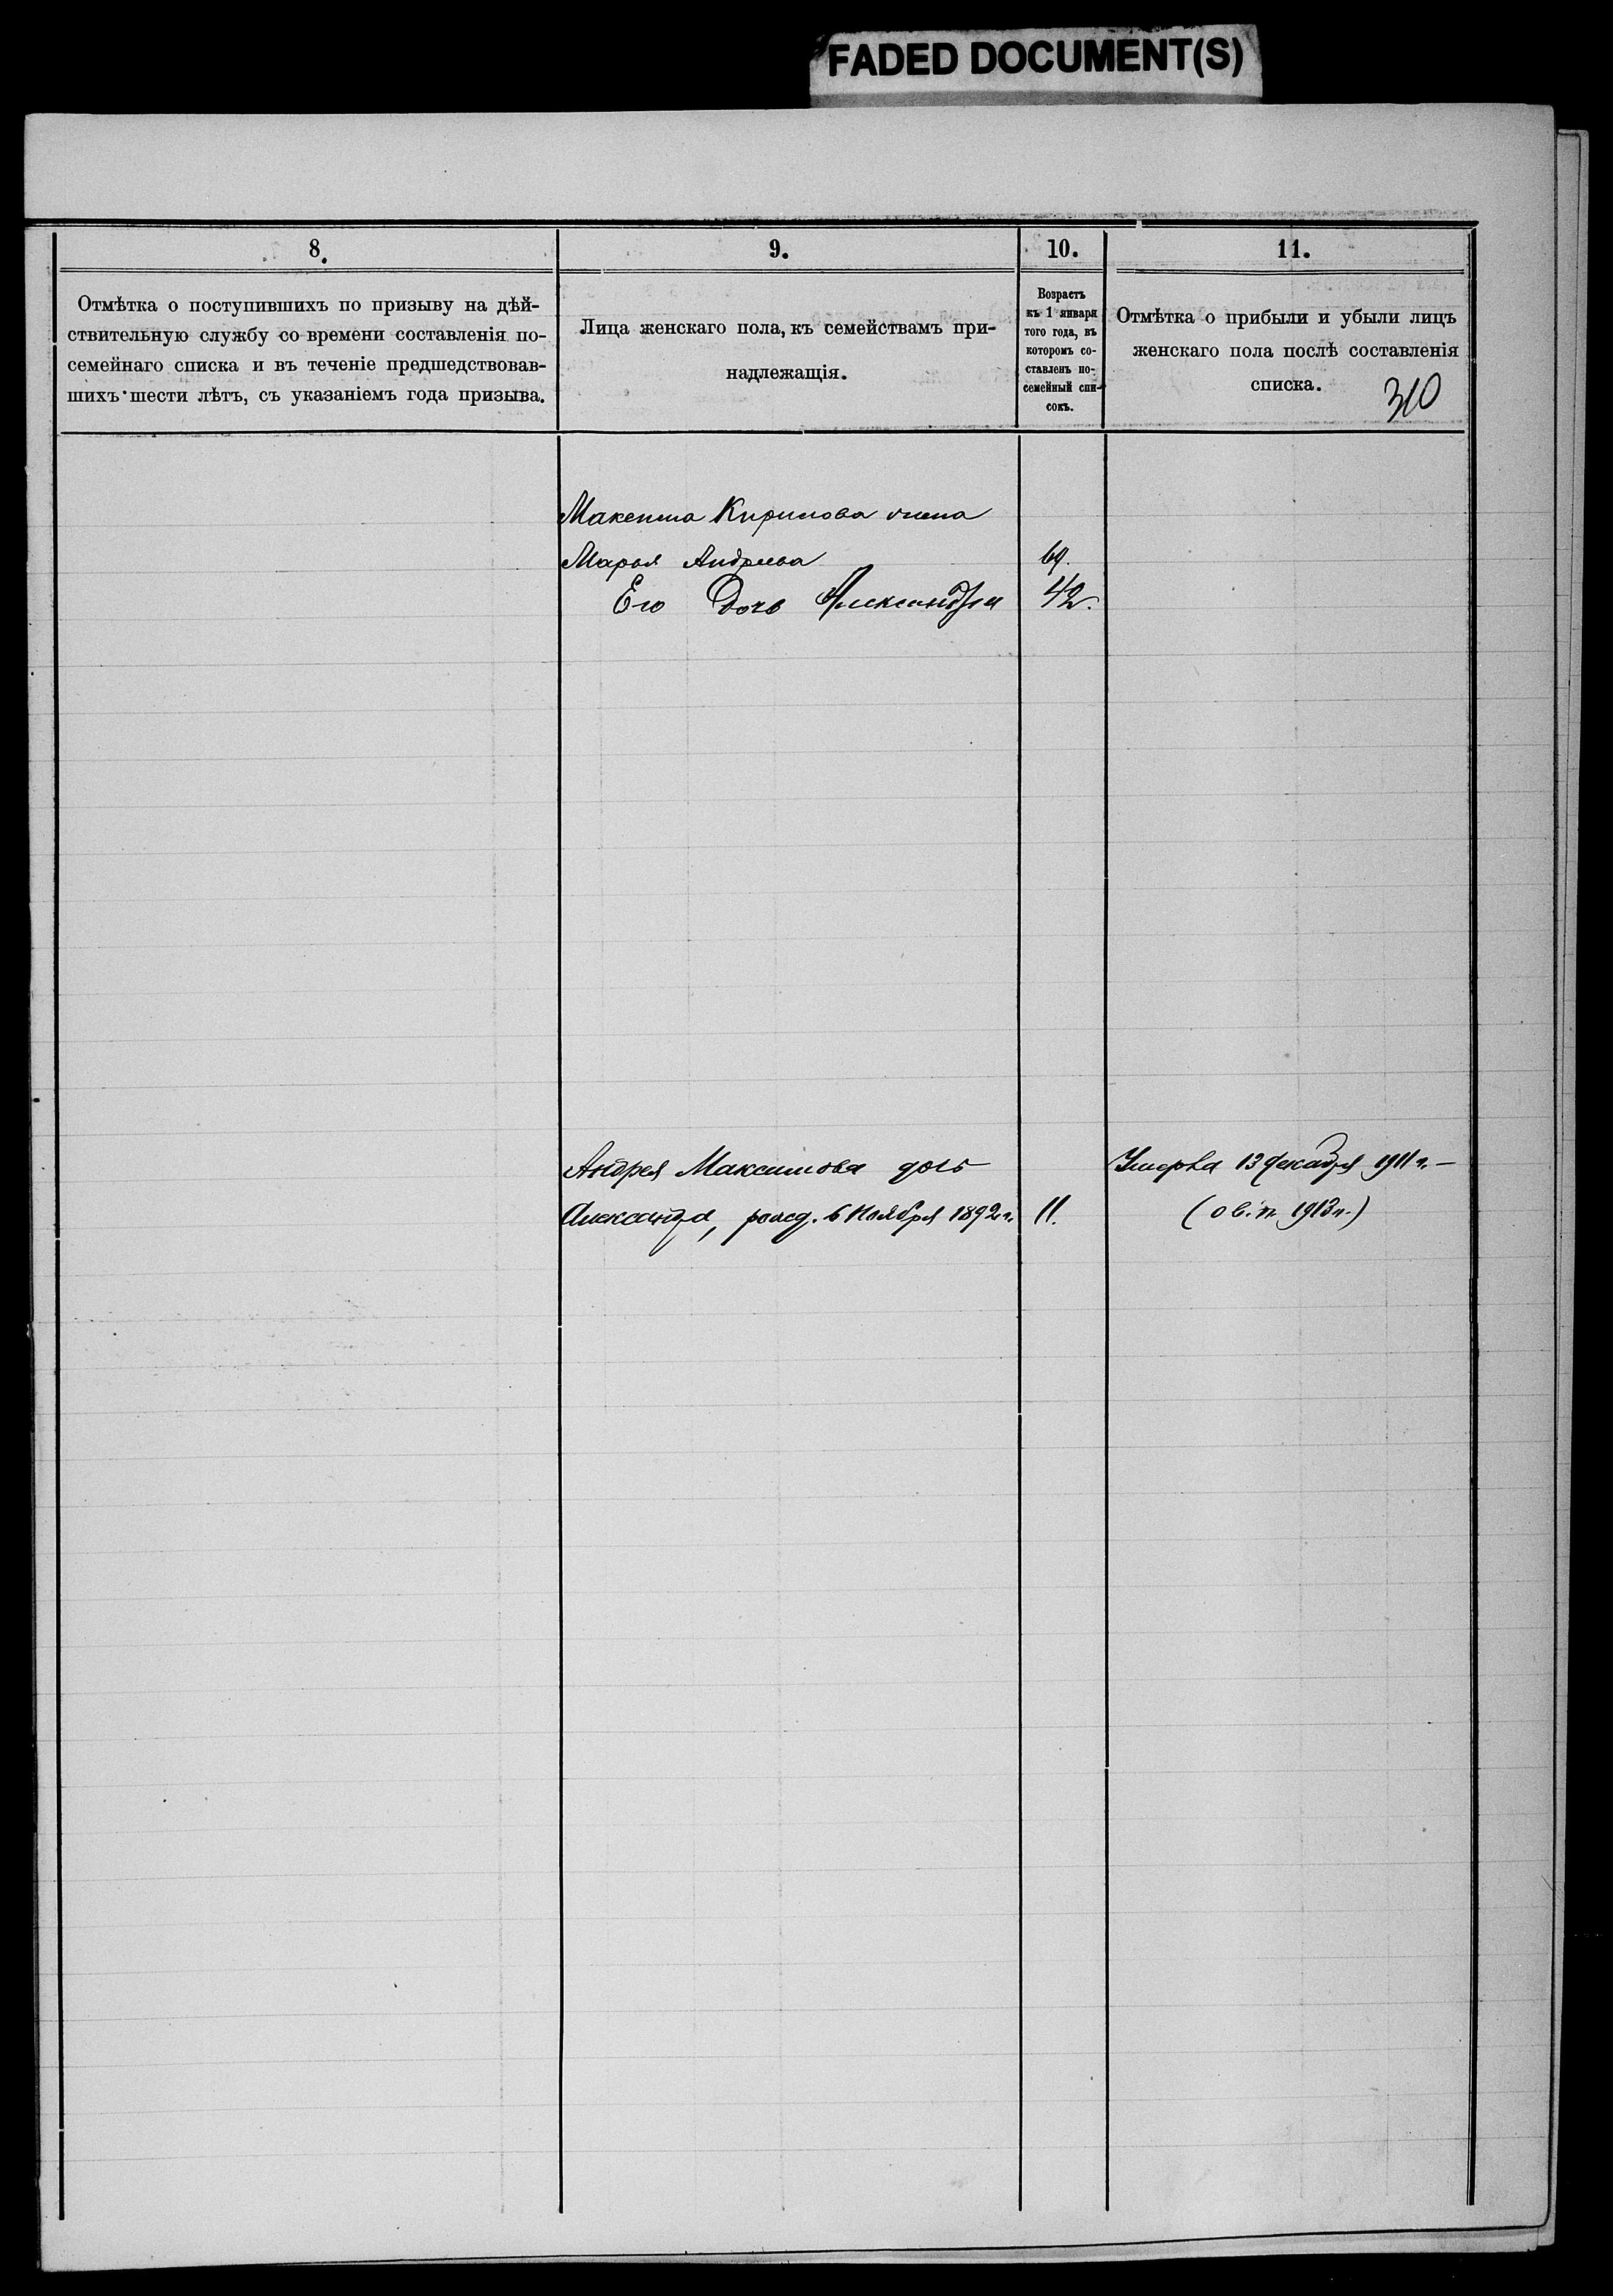 FADED DOCUMENT(S)
8.
9.
10.
11.
Отмѣтка о поступившихъ по призыву на дѣй-
ствительную службу со времени составленія по-
семейнаго списка и въ теченіе предшедствовав-
шихъ шести лѣтъ, съ указаніемъ года призыва.
Лица женскаго пола, къ семействамъ при-
надлежащія.
Возрастъ
къ 1 января
того года, въ
которомъ со-
ставленъ по-
семейный спи-
сокъ.
Отмѣтка о прибыли и убыли лицъ
женскаго пола послѣ составленія
списка.
310
Максима Кирилова жена
Марья Андреева 69.
Его Дочь Александра 42.
Андрея Максимова дочь
Александра, рожд. 6 Ноября 1892 г. 11.
Умерла 13 Декабря 1911 г. —
1913 г.)